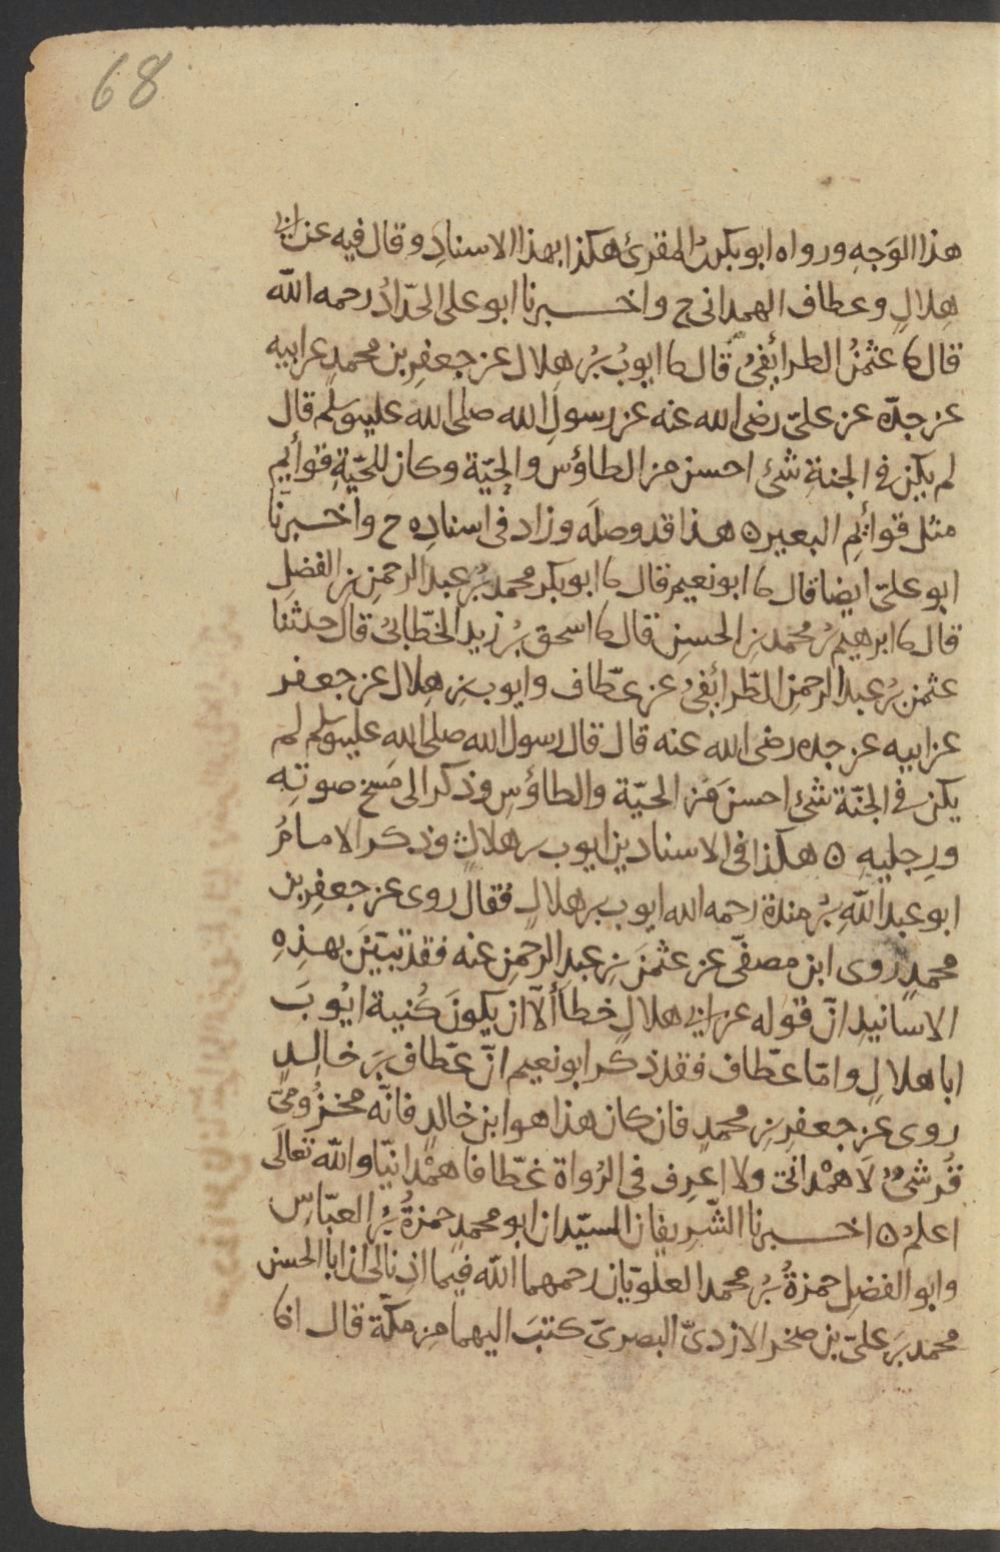 68
هذا الوَجهِ ورواه ابو بكر بن المقرئ هكذا بهذا الاسنادِ وقال فيه عن ابى
هِلالٍ وعطاف الهمدانى ح واخــبرنا ابو على الحدّادُ رحمه الله
قال نا عثمنُ الطرائِفىُ قال نا ايوبُ بنُ هِلال عن جعفرِ بن محمدٍ عن ابيه
عن جدّه عن علىّ رضى الله عنه عن رسولِ الله صلى الله عليه وسلم قال
لم يكن فى الجنةِ شئ احسن من الطاؤس والحيّة وكان للحيّةِ قوائم
مثل قوائمِ البعير ٥ هذا قد وصلَه وزاد فى اسنادِه ح واخــبرنا
ابو علىّ ايضا قال نا ابو نعيم قال نا ابو بكر محمد بنُ عبد الرحمن بن الفضلِ
قال نا ابرهيم بنُ محمد بن الحسنِ قال نا اسحق بنُ زيد الخطّابىُ قال حدثنا
عثمن بنُ عبد الرحمنِ الطّرائفىُ عن عطّاف وايوب بنِ هِلال عن جعفر
عن ابيه عن جده رضى الله عنه قال قال رسول الله صلى الله عليه وسلم لم
يكن فى الجنّة شئ احسن من الحيّة والطاؤسِ وذكر الى مَسخ صوتِه
ورِجليهِ ٥ هكذا فى الاسنادين ايوب بن هلالٍ وذكر الامامُ
ابو عبد اللهِ بنُ مندة رحمه الله ايوب بن هلالٍ فقال روى عن جعفرِ بن
محمدٍ روى ابن مصفّى عن عثمنَ بنِ عبدِ الرحمنِ عنه فقد تبيّنَ بهذِهِ
الاسانيدِ انّ قوله عن ابى هلالٍ خطأ ألّا ان يكونَ كُنية ايُوبَ
ابا هلالٍ وامّا عطّاف فقد ذكر ابو نعيم انّ عَطّاف بنَ خالِــدٍ
روى عن جعفرِ بنِ محمدٍ فان كان هذا هو ابن خالدٍ فانّه مخزُومىّ
قُرشىٌ لَا همْدانى ولا اعرِف فى الرُواة عَطّافا همْدانيّا والله تعالَى
اعلمُ ٥ اخــبرنا الشّرِيفان السيّدان ابو محمدٍ حمزةُ بنُ العبّاسِ
وابو الفضلِ حمزةُ بنُ محمد العلويّان رحمهما الله فيما اذِنا لى ان ابا الحسن
محمد بنَ علىّ بن صخر الازدىّ البصرىّ كتبَ اليهما مِن مكّة قال انا